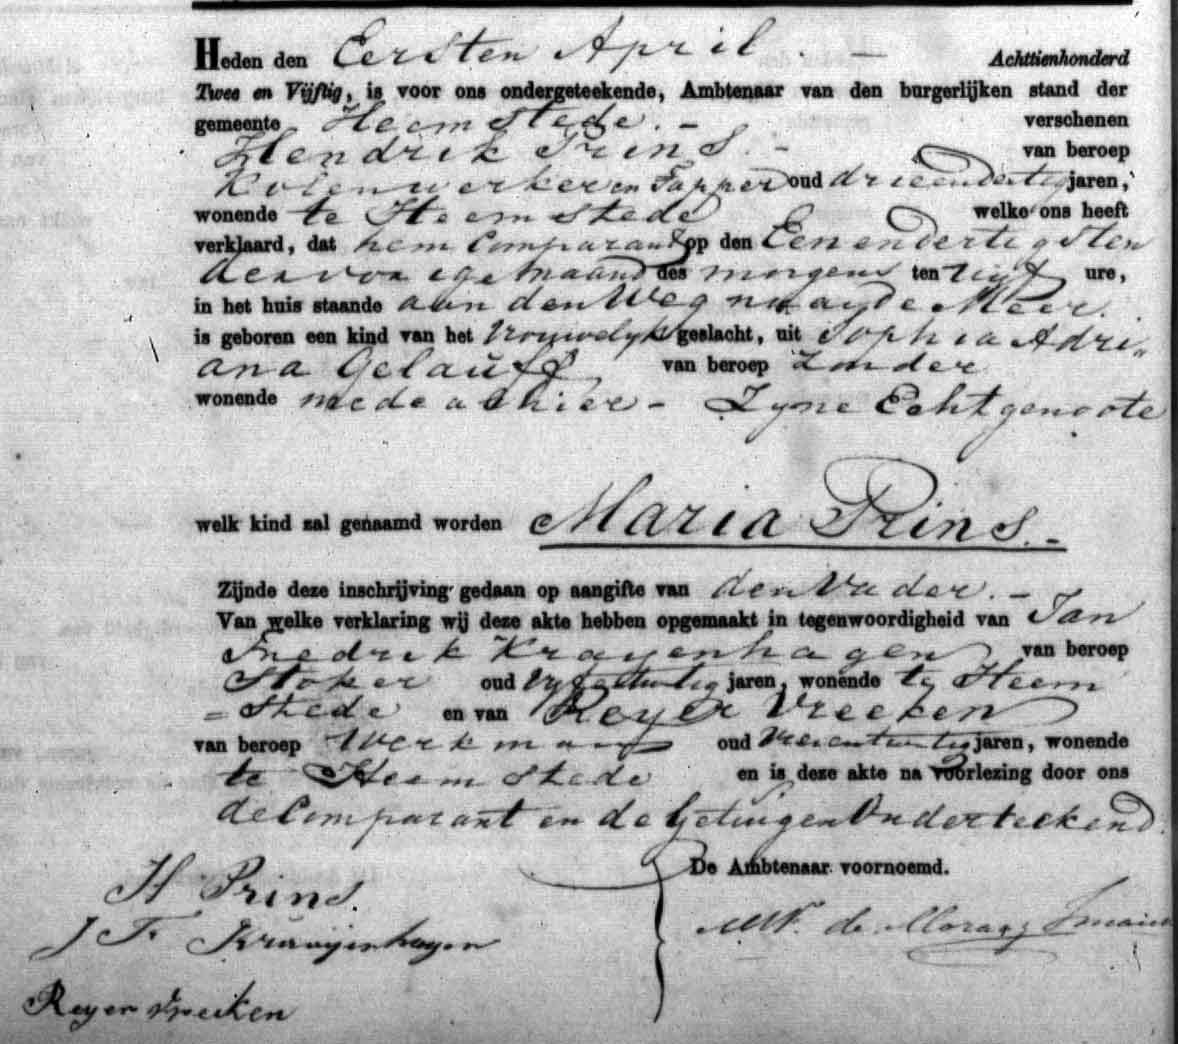 Heden den Eersten April. — Achttienhonderd
Twee en Vijftig, is voor ons ondergeteekende, Ambtenaar van den burgerlijken stand der
gemeente Heemstede. - verschenen
Hendrik Prins. - van beroep
Kolenwerker en Tapper oud drieendertig jaren,
wonende te Heemstede welke ons heeft
verklaard, dat hem Comparant op den Eenendertigsten
der vorige maand des morgens ten vijf ure,
in het huis staande aan den Weg naar de Meer.
is geboren een kind van het Vrouwelyk geslacht, uit Sophia Adri„
ana Gelauff van beroep zonder
wonende mede alhier - Zyne Echtgenoote
welk kind zal genaamd worden Maria Prins. -
Zijnde deze inschrijving gedaan op aangifte van den Vader. -
Van welke verklaring wij deze akte hebben opgemaakt in tegenwoordigheid van Jan
Fredrik Krayenhagen van beroep
Stoker oud vyfentwintig jaren, wonende te Heem
=stede en van Reyer Vreeken
van beroep Werkman oud vierentwintig jaren, wonende
te Heemstede en is deze akte na voorlezing door ons
de Comparant en de Getuigen Onderteekend.
De Ambtenaar voornoemd.
H Prins.
J F Kruijenhagen
Reyer Vreeken
de